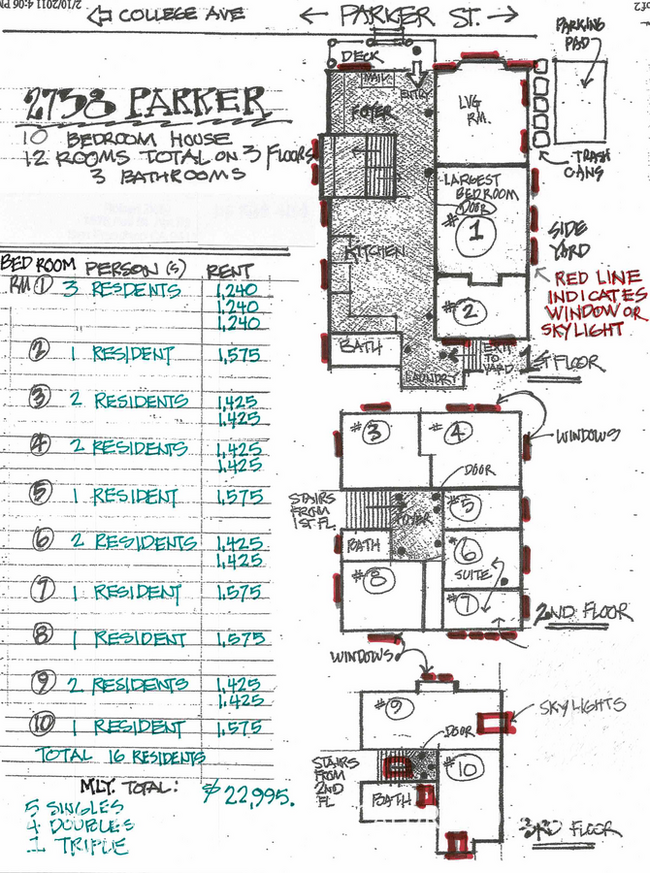 2/10/2011 4:06 PM
of 2
COLLEGE AVE
PARKER ST.
PARKING
PAD
2738 PARKER
10 BEDROOM HOUSE
12 ROOMS TOTAL ON 3 FLOORS
3 BATHROOMS
BEDROOM PERSON(S) RENT
RM 1 3 RESDENTS 1,240
1,240
1,240
2 1 RESIDENT 1,575
3 2 RESIDENTS 1,425
1,425
4 2 RESIDENTS 1,425
1,425
5 1 RESIDENT 1,575
6 2 RESIDENTS 1,425
1,425
7 1 RESIDENT 1,575
8 1 RESIDENT 1,575
9 2 RESIDENTS 1,425
1,425
10 1 RESIDENT 1,575
TOTAL 16 RESIDENTS
MLY. TOTAL: $22,995.
5 SINGLES
4 DOUBLES
1 TRIPLE
DECK
MAIL
ENTRY
FOYER
LVG
RM.
TRASH
CANS
LARGEST
BEDROOM
DOOR
#1
KITCHEN
SIDE
YARD
RED LINE
INDICATES
WINDOW OR
SKYLIGHT
#2
BATH
LAUNDRY
EXIT
TO
YARD
1ST FLOOR
#3
#4
WINDOWS
DOOR
STAIRS
FROM
1ST FL.
FOYER
#5
BATH
#6
SUITE
#8
#7
2ND FLOOR
WINDOWS
#9
SKYLIGHTS
DOOR
STAIRS
FROM
2ND
FL
#10
BATH
3RD FLOOR